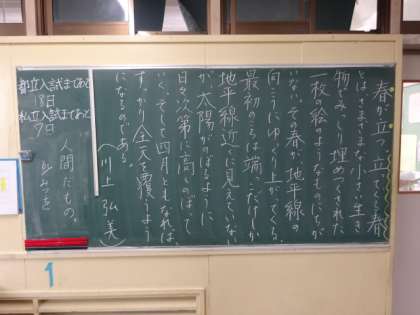 春が立つ。立ってくる春
とはさまざまな小さい生き
物でみっしり埋めつくされた
一枚の絵のようなものではな
いか。その春が、地平線の
向こうにゆっくり上がってくる。
最初のころは端っこだけしか
地平線近くに見えていない
が、太陽がのぼるように
日々次第に高くのぼって
いく。そして四月ともなれば、
すっかり全天を覆うよう
になるのである。
（川上弘美）
都立入試まであと
18日
私立入試まであと
7日
人間だもの。
みつを
1